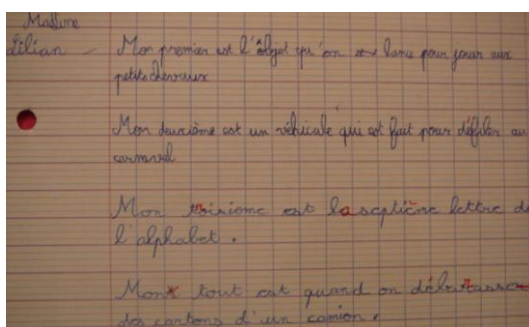 Maxime
Lilian — Mon premier est l'objet qu'on lance pour jouer aux
petits chevaux
Mon deuxième est un véhicule qui est fait pour défiler au
carnaval
Mon troisiome est la septième lettre de
l'alphabet.
Mon tout est quand on débarrasse
des cartons d'un camion.